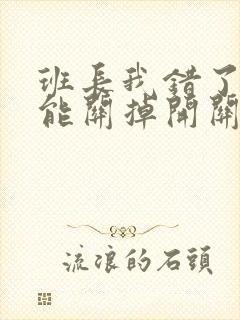 班长我错了
能關掉開關
流浪的石頭